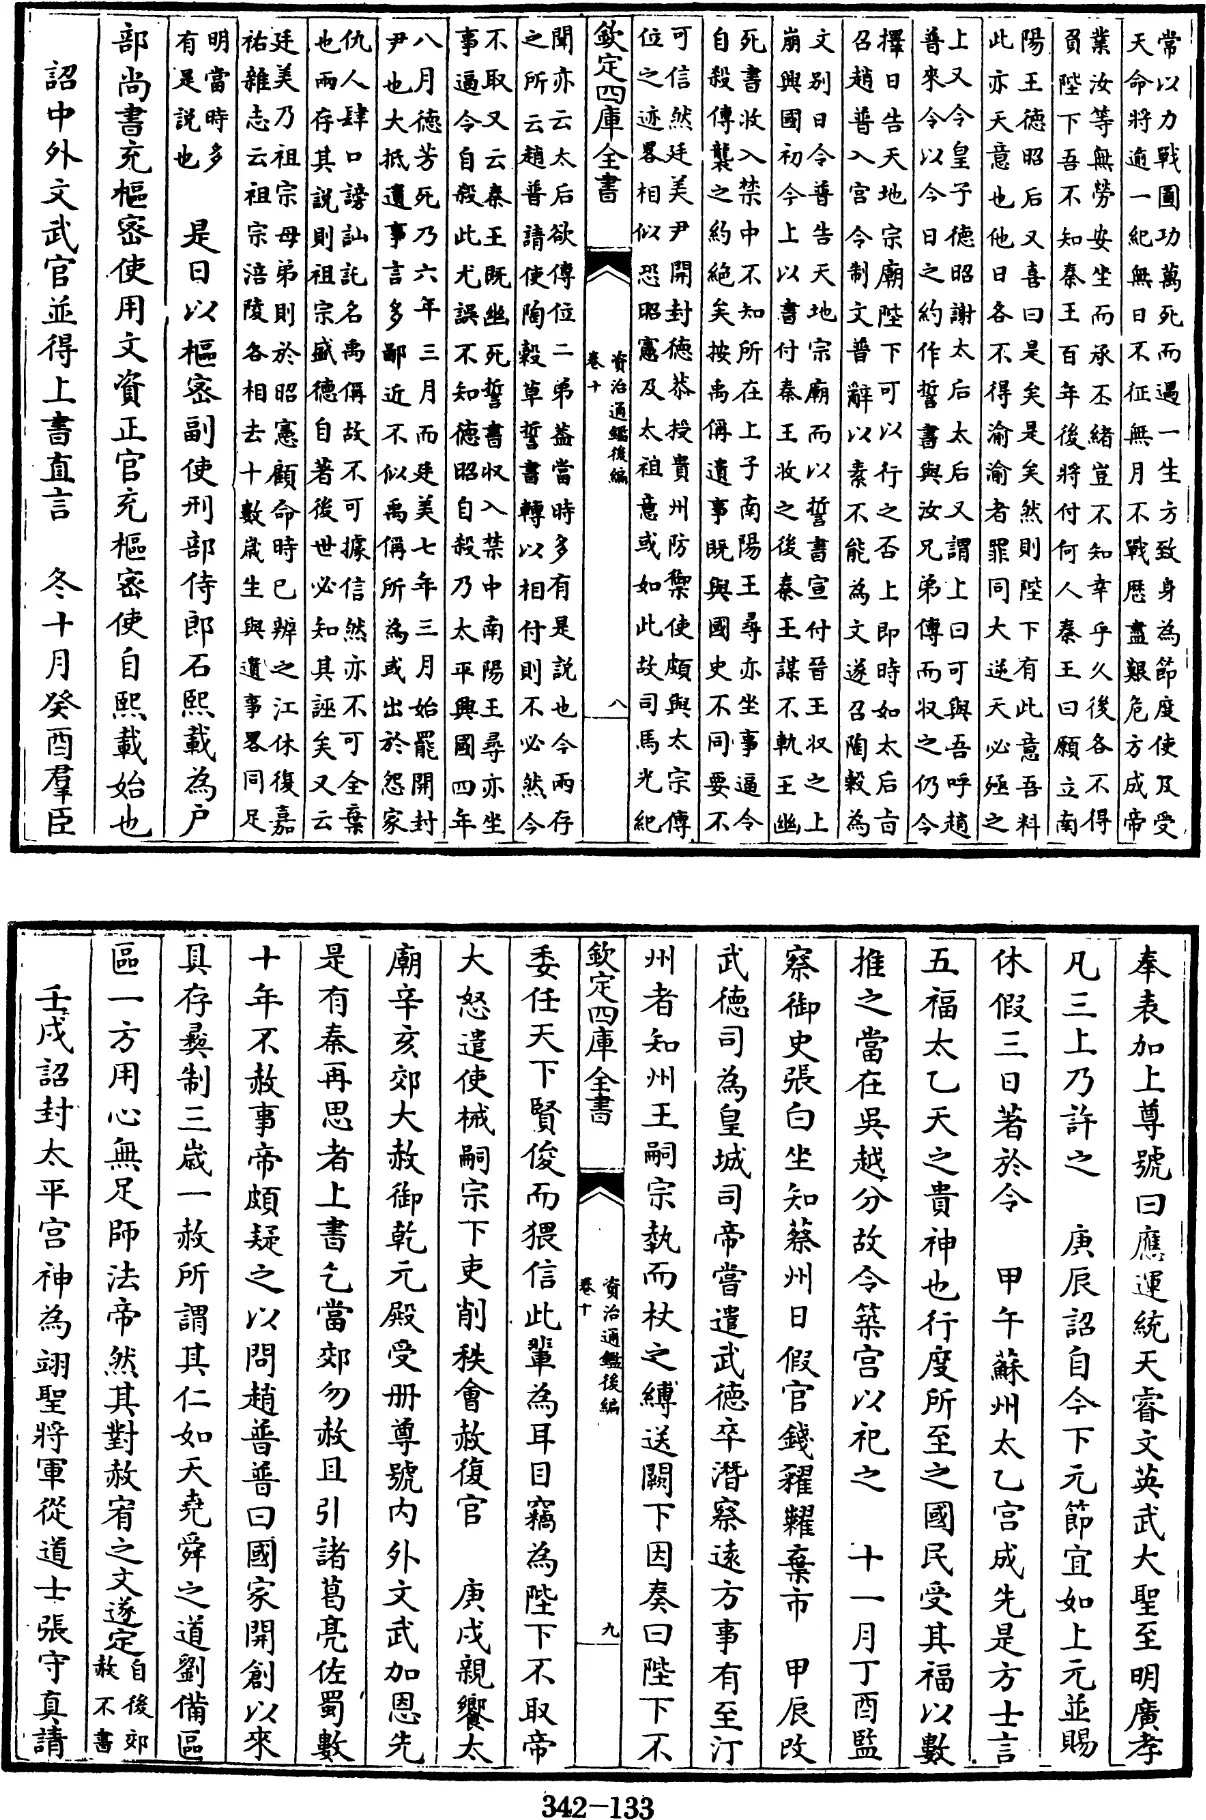 常以力戰圖功萬死而遇一生方致身為節度使及受
天命將逾一紀無日不征無月不戰歷盡艱危方成帝
業汝等無勞安坐而承丕緒豈不知幸乎久後各不得
負陛下吾不知秦王百年後將付何人秦王曰願立南
陽王德昭后又喜曰是矣是矣然則陛下有此意吾料
此亦天意也他日各不得渝渝者罪同大逆天必殛之
上又令皇子德昭謝太后太后又謂上曰可與吾呼趙
普來令以今日之約作誓書與汝兄弟傳而収之仍令
擇日告天地宗廟陛下可以行之否上即時如太后旨
召趙普入宮令制文普辭以素不能為文遂召陶穀為
文别日令普告天地宗廟而以誓書宣付晉王収之上
崩興國初今上以書付秦王收之後秦王謀不軌王幽
死書收入禁中不知所在上子南陽王尋亦坐事逼令
自殺傳襲之約絶矣按禹偁遺事既與國史不同要不
可信然廷美尹開封德恭授貴州防禦使頗與太宗傳
位之迹畧相似恐昭憲及太祖意或如此故司馬光紀
欽定四庫全書
資治通鑑後編
卷十
八
聞亦云太后欲傳位二弟葢當時多有是説也今兩存
之所云趙普請使陶穀草誓書轉以相付則不必然今
不取又云秦王既幽死誓書収入禁中南陽王尋亦坐
事逼令自殺此尤誤不知德昭自殺乃太平興國四年
八月德芳死乃六年三月而廷美七年三月始罷開封
尹也大抵遺事言多鄙近不似禹偁所為或出於怨家
仇人肆口謗訕託名禹偁故不可據信然亦不可全棄
也兩存其説則祖宗盛德自著後世必知其誣矣又云
廷美乃祖宗母弟則於昭憲顧命時已辨之江休復嘉
祐雜志云祖宗涪陵各相去十數歲生與遺事畧同足
明當時多
有是説也
是日以樞密副使刑部侍郎石熙載為户
部尚書充樞密使用文資正官充樞密使自熙載始也
詔中外文武官並得上書直言　冬十月癸酉羣臣
奉表加上尊號曰應運統天睿文英武大聖至明廣孝
凡三上乃許之　庚辰詔自今下元節宜如上元並賜
休假三日著於令　甲午蘇州太乙宮成先是方士言
五福太乙天之貴神也行度所至之國民受其福以數
推之當在吳越分故令築宮以祀之　十一月丁酉監
察御史張白坐知蔡州日假官錢糴糶棄市　甲辰改
武德司為皇城司帝嘗遣武德卒潛察遠方事有至汀
州者知州王嗣宗執而杖之縛送闕下因奏曰陛下不
欽定四庫全書
資治通鑑後編
卷十
九
委任天下賢俊而猥信此輩為耳目竊為陛下不取帝
大怒遣使械嗣宗下吏削秩會赦復官　庚戌親饗太
廟辛亥郊大赦御乾元殿受册尊號内外文武加恩先
是有秦再思者上書乞當郊勿赦且引諸葛亮佐蜀數
十年不赦事帝頗疑之以問趙普普曰國家開創以來
具存彝制三歲一赦所謂其仁如天堯舜之道劉備區
區一方用心無足師法帝然其對赦宥之文遂定
自後郊
赦不書
壬戌詔封太平宮神為翊聖將軍從道士張守真請
342-133